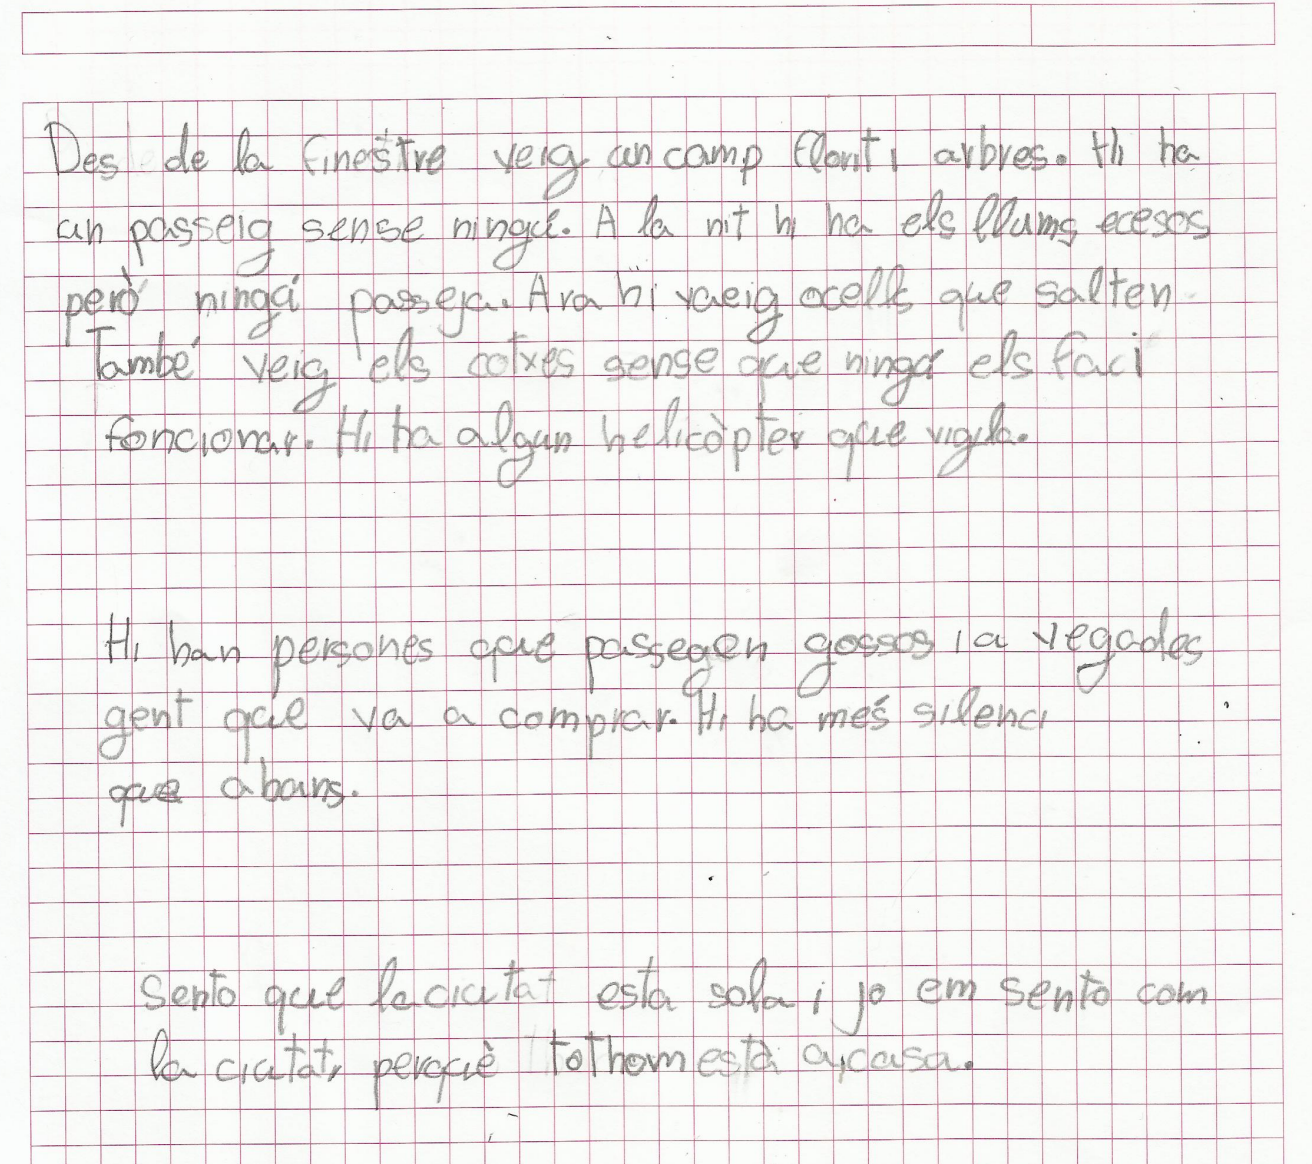 Des de la finestre veig un camp florit i arbres. Hi ha
un passeig sense ningú. A la nit hi ha els llums ecesos
però ningú passeja. Ara hi vaeig ocells que salten
També veig els cotxes sense que ningú els faci
foncionar. Hi ha algun helicòpter que vigila.
Hi han persones que passegen gossos i a vegades
gent que va a comprar. Hi ha més silenci
que abans.
Sento que la ciutat esta sola i jo em sento com
la ciutat, perquè tothom està a casa.